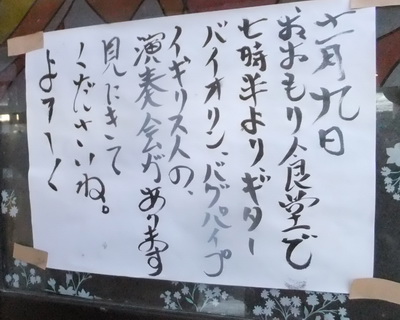 十一月九日
おおもり食堂で
七時半よりギター
バイオリン、バグパイプ
イギリス人の、
演奏会があります
見にきて
くださいね。
よろーく